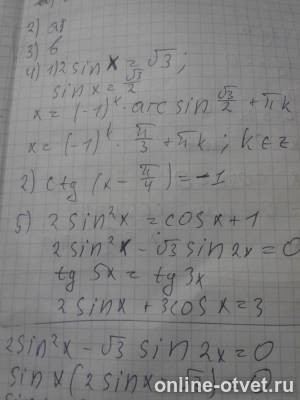 2) а
3) б
4) 1) 2 sin x = √3 ;
sin x = √3/2
x = (-1)^k · arc sin √3/2 + πk
x = (-1)^k · π/3 + πk ; k ∈ z
2) ctg (x - π/4) = -1
5) 2 sin²x = cos x + 1
2 sin²x - √3 sin 2x = 0
tg 5x = tg 3x
2 sin x + 3 cos x = 3
2 sin²x - √3 sin 2x = 0
sin x (2 sin x
online-otvet.ru